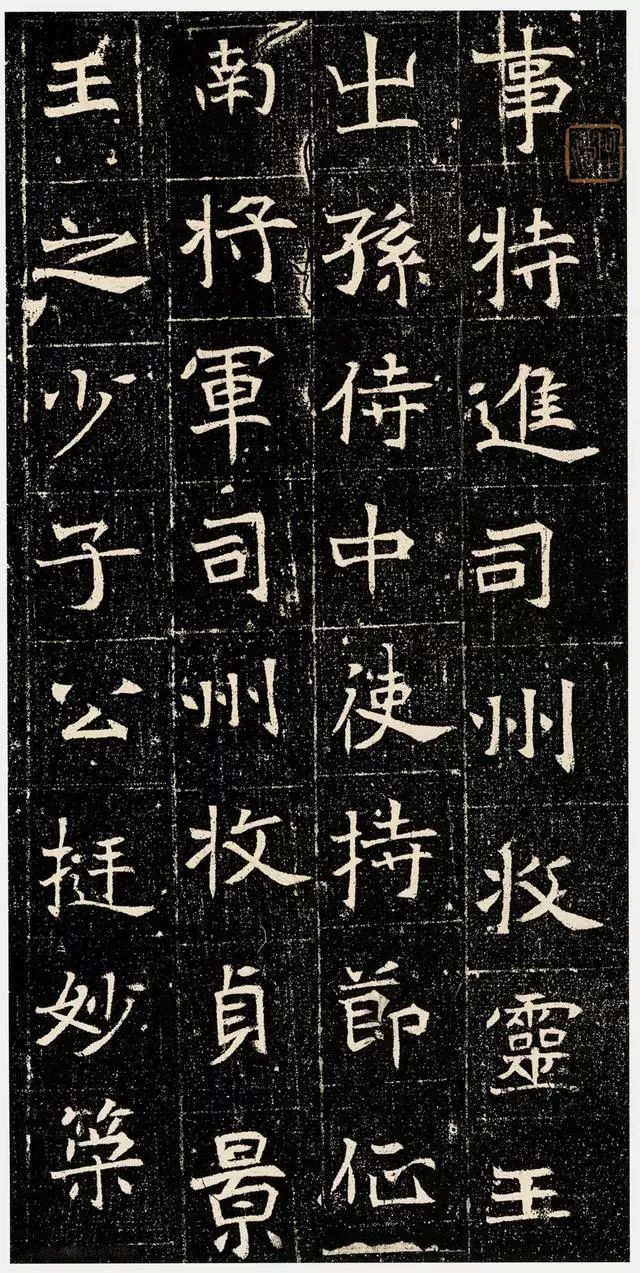 事特進司州牧靈王
㞢孫侍中使持節征
南將軍司州牧貞景
王之少子公挺妙策